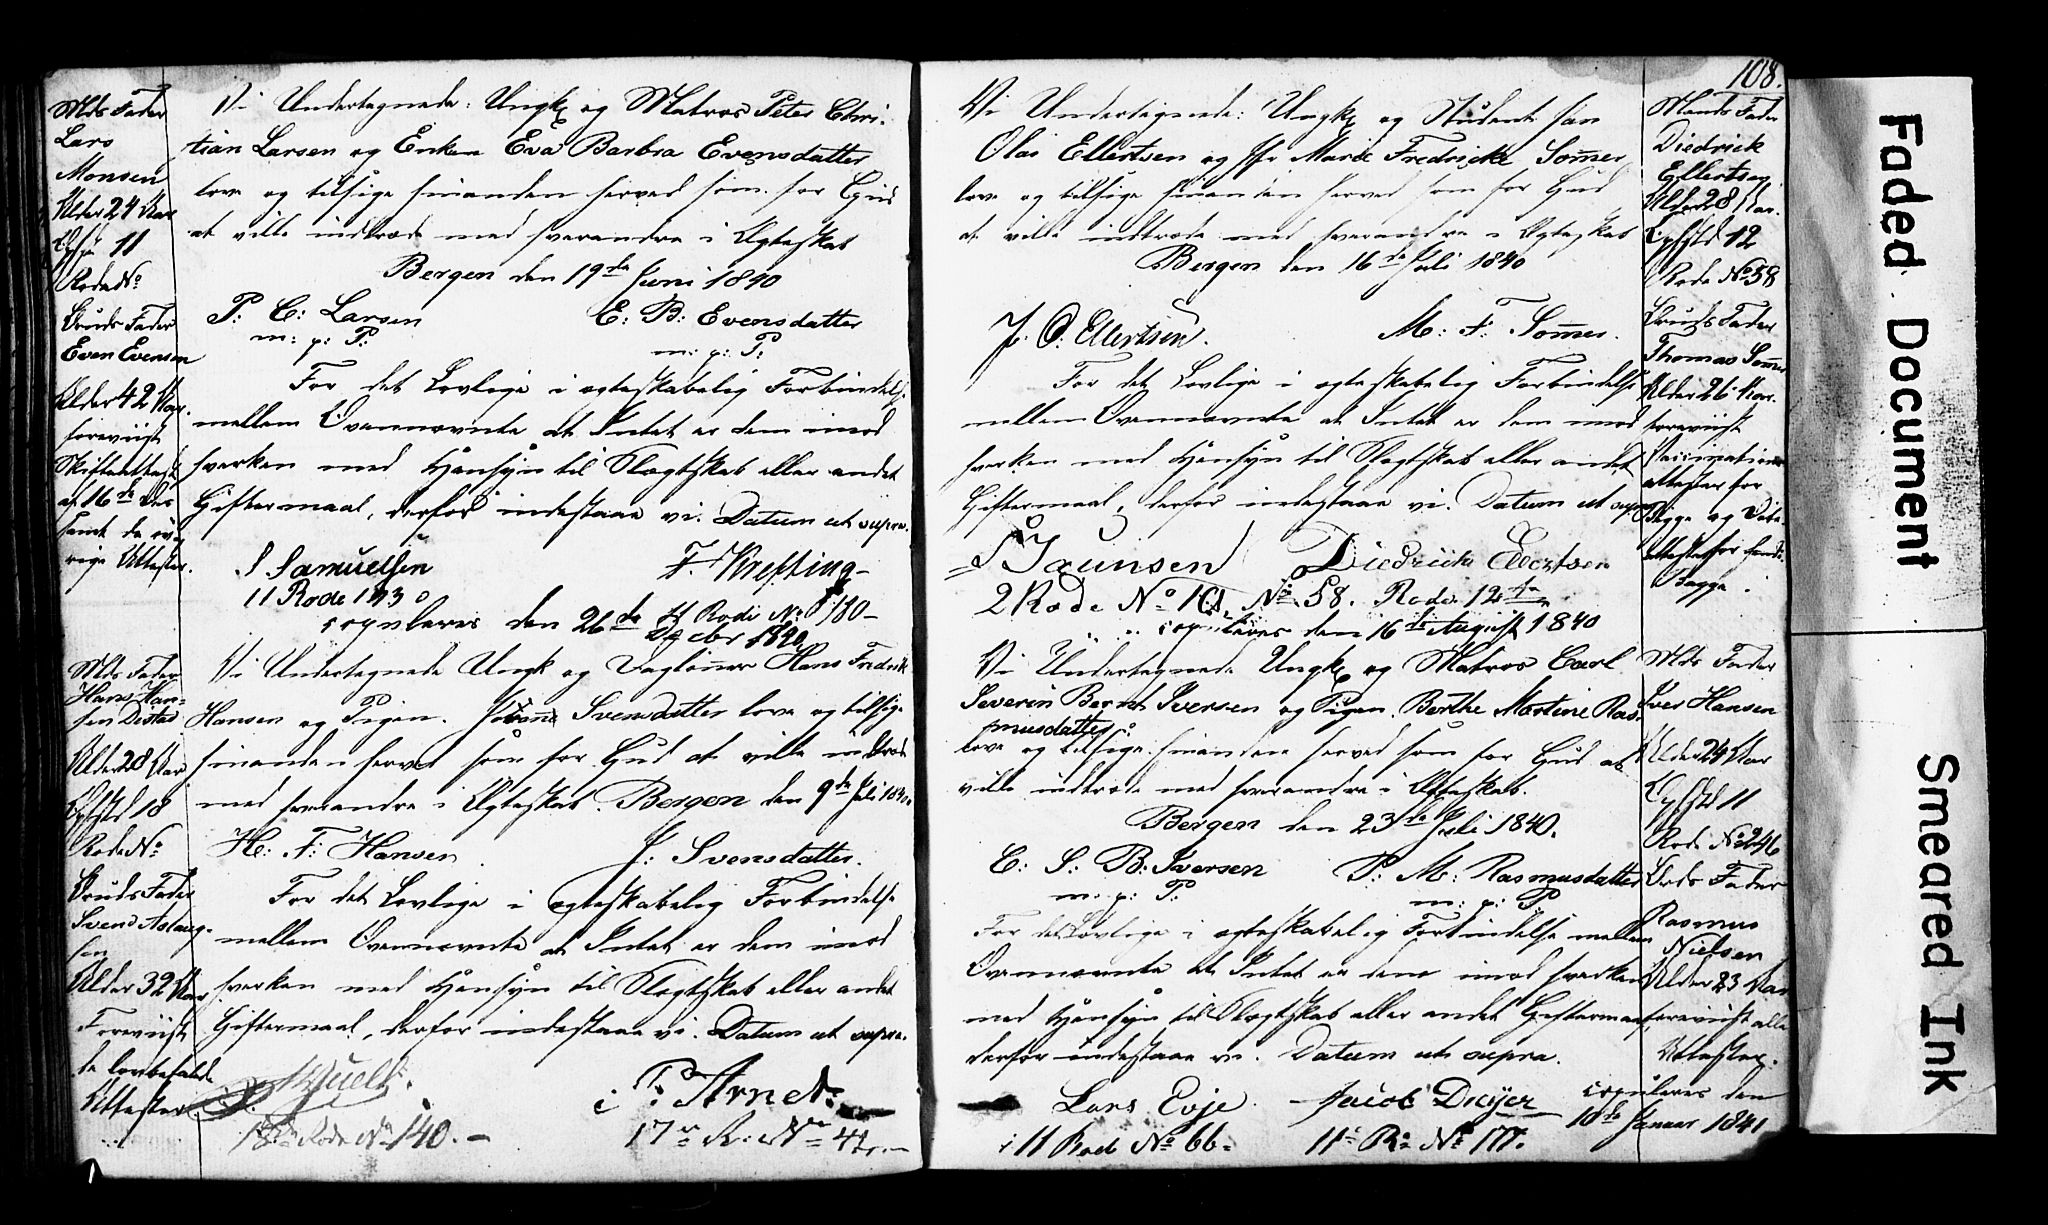 Mds Fader
Lars
Monsen
Alder 24 Aar
11
Rode No
Bruds Fader
Even Evensen
Alder 42 Aar.
foreviist
Skifteattest
af 16de
samt de øv
rige Attester.
Vi Undertegnede: Ungk og Matros Peter Chri-
tian Larsen og Enken Eva Barbra Evensdatter
love og tilsige hinanden herved som for Gud
at ville indtræde med hverandre i Ægteskab
Bergen den 19de Juni 1840
P: C: Larsen E: B: Evensdatter
m: p: P: m: p: P:
For det Lovlige i ægteskabelig Forbindelse
mellem Ovennævnte at Intet er dem imod
hverken med Hensyn til Slægtskab eller andet
Giftermaal, derfor indestaae vi. Datum ut supra.
S Samuelsen F. Krefting
11 Rode 173 11 Rode No 180
copuleres den 26de Decbr 1840
Mds Fader
Hans Han-
sen Distad
Alder 28 Aar
18
Rode No
Bruds Fader
Svend Aslaug-
sen
Alder 32 Aar
Foreviist
de lovbefalede
Attester.
Vi Undertegnede Ungk og Dagløner Hans Fredrik
Hansen og Pigen Johane Svensdatter love og tilsige
hinanden herved som for Gud at ville indtræde
med hverandre i Ægteskab. Bergen den 9de Juli 1840
H: F: Hansen J: Svensdatter.
For det Lovlige i ægteskabelig Forbindelse
mellem Ovennævnte at Intet er dem imod
hverken med Hensyn til Slægtskab eller andet
Giftermaal, derfor indestaae vi. Datum ut supra.
P. Arnet
18de Rode No 140. i 17 R: No
108.
Vi Undertegnede: Ungk og Student Jan
Olai Ellertsen og Jfr Marie Fredrikke Somer
love og tilsige hinanden herved som for Gud
at ville indtræde med hverandre i Ægteskab
Bergen den 16de Juli 1840
J. O. Ellertsen. M: F: Somer.
For det Lovlige i ægteskabelig Forbindelse
mellem Ovennævnte at Intet er dem imod
hverken med Hensyn til Slægtskab eller andet
Giftermaal, derfor indestaae vi. Datum ut supra
Diedrich Ellertsen
2 Rode No 101. No 58. Rode 12te
copuleres den 16de August 1840
Mands Fader
Diedrick
Ellertsen
Alder 28 Aar.
12
Rode No 58
Bruds Fader
Thomas Somer
Alder 26 Aar.
foreviist
Vaccinations
attester for
Begge og Døbe
attester for
Begge.
Vi Undertegnede Ungk og Matros Carl
Severin Bernt Iversen og Pigen Berthe Martine Ras-
musdatter
love og tilsige hinanden herved som for Gud at
ville indtræde med hverandre i Ægteskab.
Bergen den 23de Juli 1840.
C: S: B: Iversen B: M: Rasmusdatter
m: p: P: m: p: P:
For det Lovlige i ægteskabelig Forbindelse mellem
Ovennævnte at Intet er dem imod hverken
med Hensyn til Slægtskab eller andet Giftermaal,
derfor indestaae vi. Datum ut supra.
Lars Evje Jacob Dreyer
i 11 Rode No 66. 11 R: No 177.
Mds Fader
Iver Hansen
Alder 24 Aar
11
Rode No 246
Brds Fader
Rasmus
Nielsen
Alder 23 Aar
foreviist alle
Attester.
copuleres den
10de Januar 1841
Faded Document
Smeared Ink